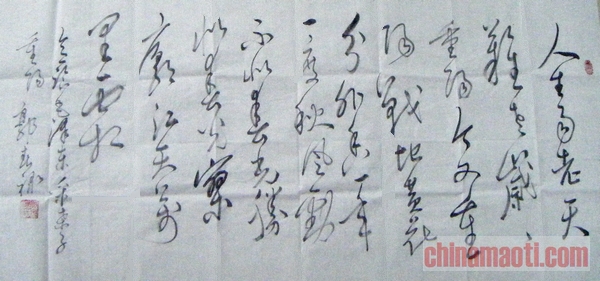 人生易老天
难老岁、
重阳今又重
阳战地黄花
分外香一年
一度秋风劲
不似春光胜
似春光寥
廓江天万
里霜
毛泽东采桑子
重阳 郭
chinamaoti.com